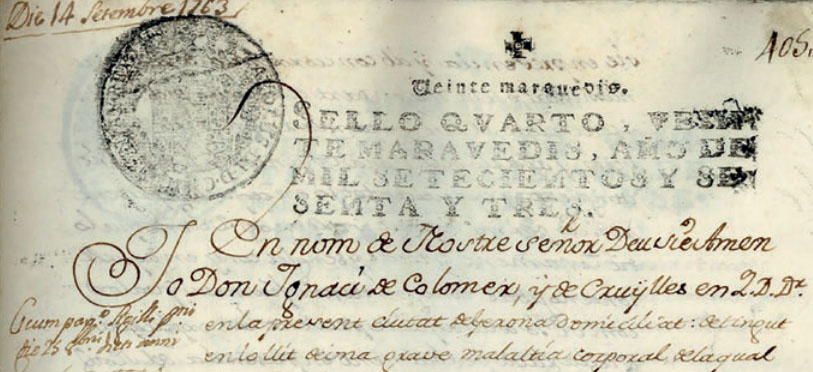 Die 14 Setembre 1763
405.
Veinte maravedis.
SELLO QVARTO, VEIN
TE MARAVEDIS, AÑO DE
MIL SETECIENTOS Y SE
SENTA Y TRES.
En nom de Nostre señor Deu sie Amen
Jo Don Ignaci de Colomer, y de Cruylles en D. Dr.
en la present ciutat de Gerona domiciliat: detingut
en lo llit de una grave malaltia corporal, de la qual